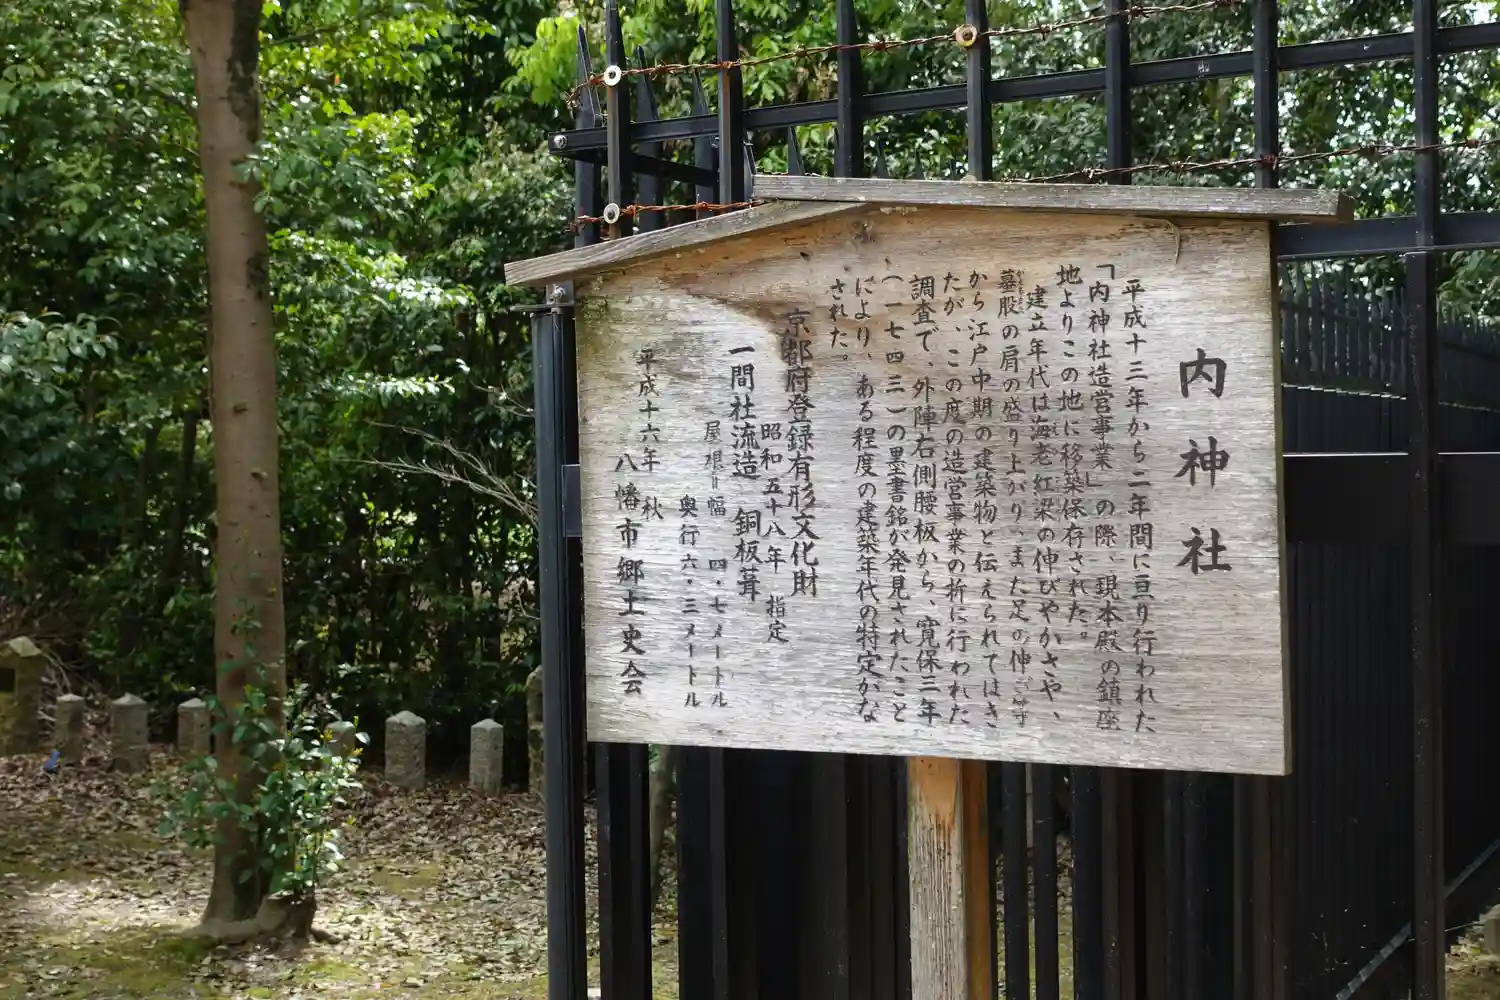 内神社
平成十三年から二年間に亘り行われた
「内神社造営事業」の際、現本殿の鎮座
地よりこの地に移築保存された。
建立年代は海老紅梁の伸びやかさや、
蟇股の肩の盛り上がり、また足の伸び等
から江戸中期の建築物と伝えられてはき
たが、この度の造営事業の折に行われた
調査で、外陣右側腰板から、寛保三年
(一七四三)の墨書銘が発見されたこと
により、ある程度の建築年代の特定がな
された。
京都府登録有形文化財
昭和五十八年 指定
一間社流造 銅板葺
屋根＝幅 四・七メートル
奥行六・三メートル
平成十六年 秋
八幡市郷土史会